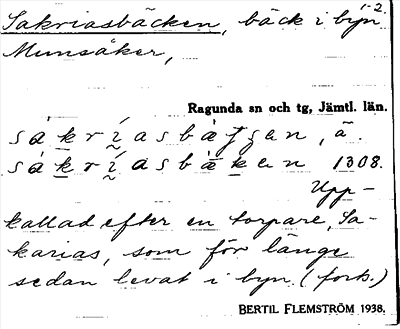 1-2.
Sakriasbäcken, bäck i byn
Munsåker,
Ragunda sn och tg, Jämtl. län.
sákríasbàʃʃen, ä.
sákríasbäken 1308.
Upp-
kallad efter en torpare, Sa-
karias, som för länge
sedan levat i byn. (forts.)
BERTIL FLEMSTRÖM 1938.